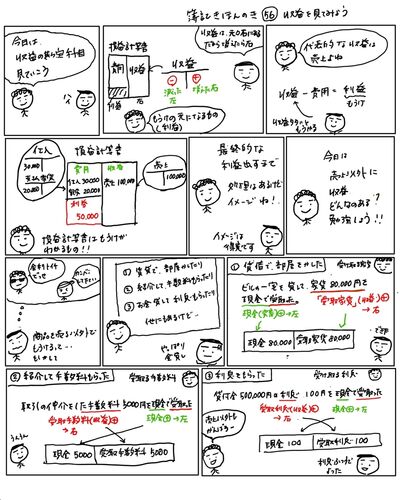 簿記きほんのき 56 収益を見てみよう
今日は
収益の勘定科目
見ていこう
ハイ
損益計算書
費用
収益
利益
左
右
収益
減ったら左
増えたら右
収益は、元々右にある
だから増えたら右
もうけの元になるもの
(利益)
代表的な収益は
売上よね
収益 - 費用 = 利益
もうけ
仕入
30,000
20,000
損益計算書
費用
収益
仕入 30,000
20,000
売上 100,000
利益
50,000
売上
100,000
損益計算書はもうけが
わかるもの!!
最終的な
利益出すまで
処理はあるけど
イメージね!
イメージは
大事です
今日は
売上以外に
収益
どんなのある?
勉強しよう!!
商品を売る以外で
もうけるって…
① 賃貸で、部屋かしたり
② 紹介して手数料もらったり
③ お金貸して利息もらったり
やっぱり
金貸し
① 賃借で部屋をかした
受取家賃
ビルの一室を貸して、家賃 80,000円を
現金で受取った。
現金(資産)⊕→左
「受取家賃」(収益)⊕
→右
現金 80,000
受取家賃 80,000
② 紹介して手数料もらった
受取手数料
取引の仲介をした手数料 5000円を現金で受取った
受取手数料(収益)⊕
→右
現金⊕→左
うんうん
現金 5000
受取手数料 5000
③ 利息をもらった
受取利息
貸付金 500,000円の利息 100円を現金で受取った
受取利息(収益)⊕
→右
現金⊕→左
売上以外も
がんばろー
現金 100
受取利息 100